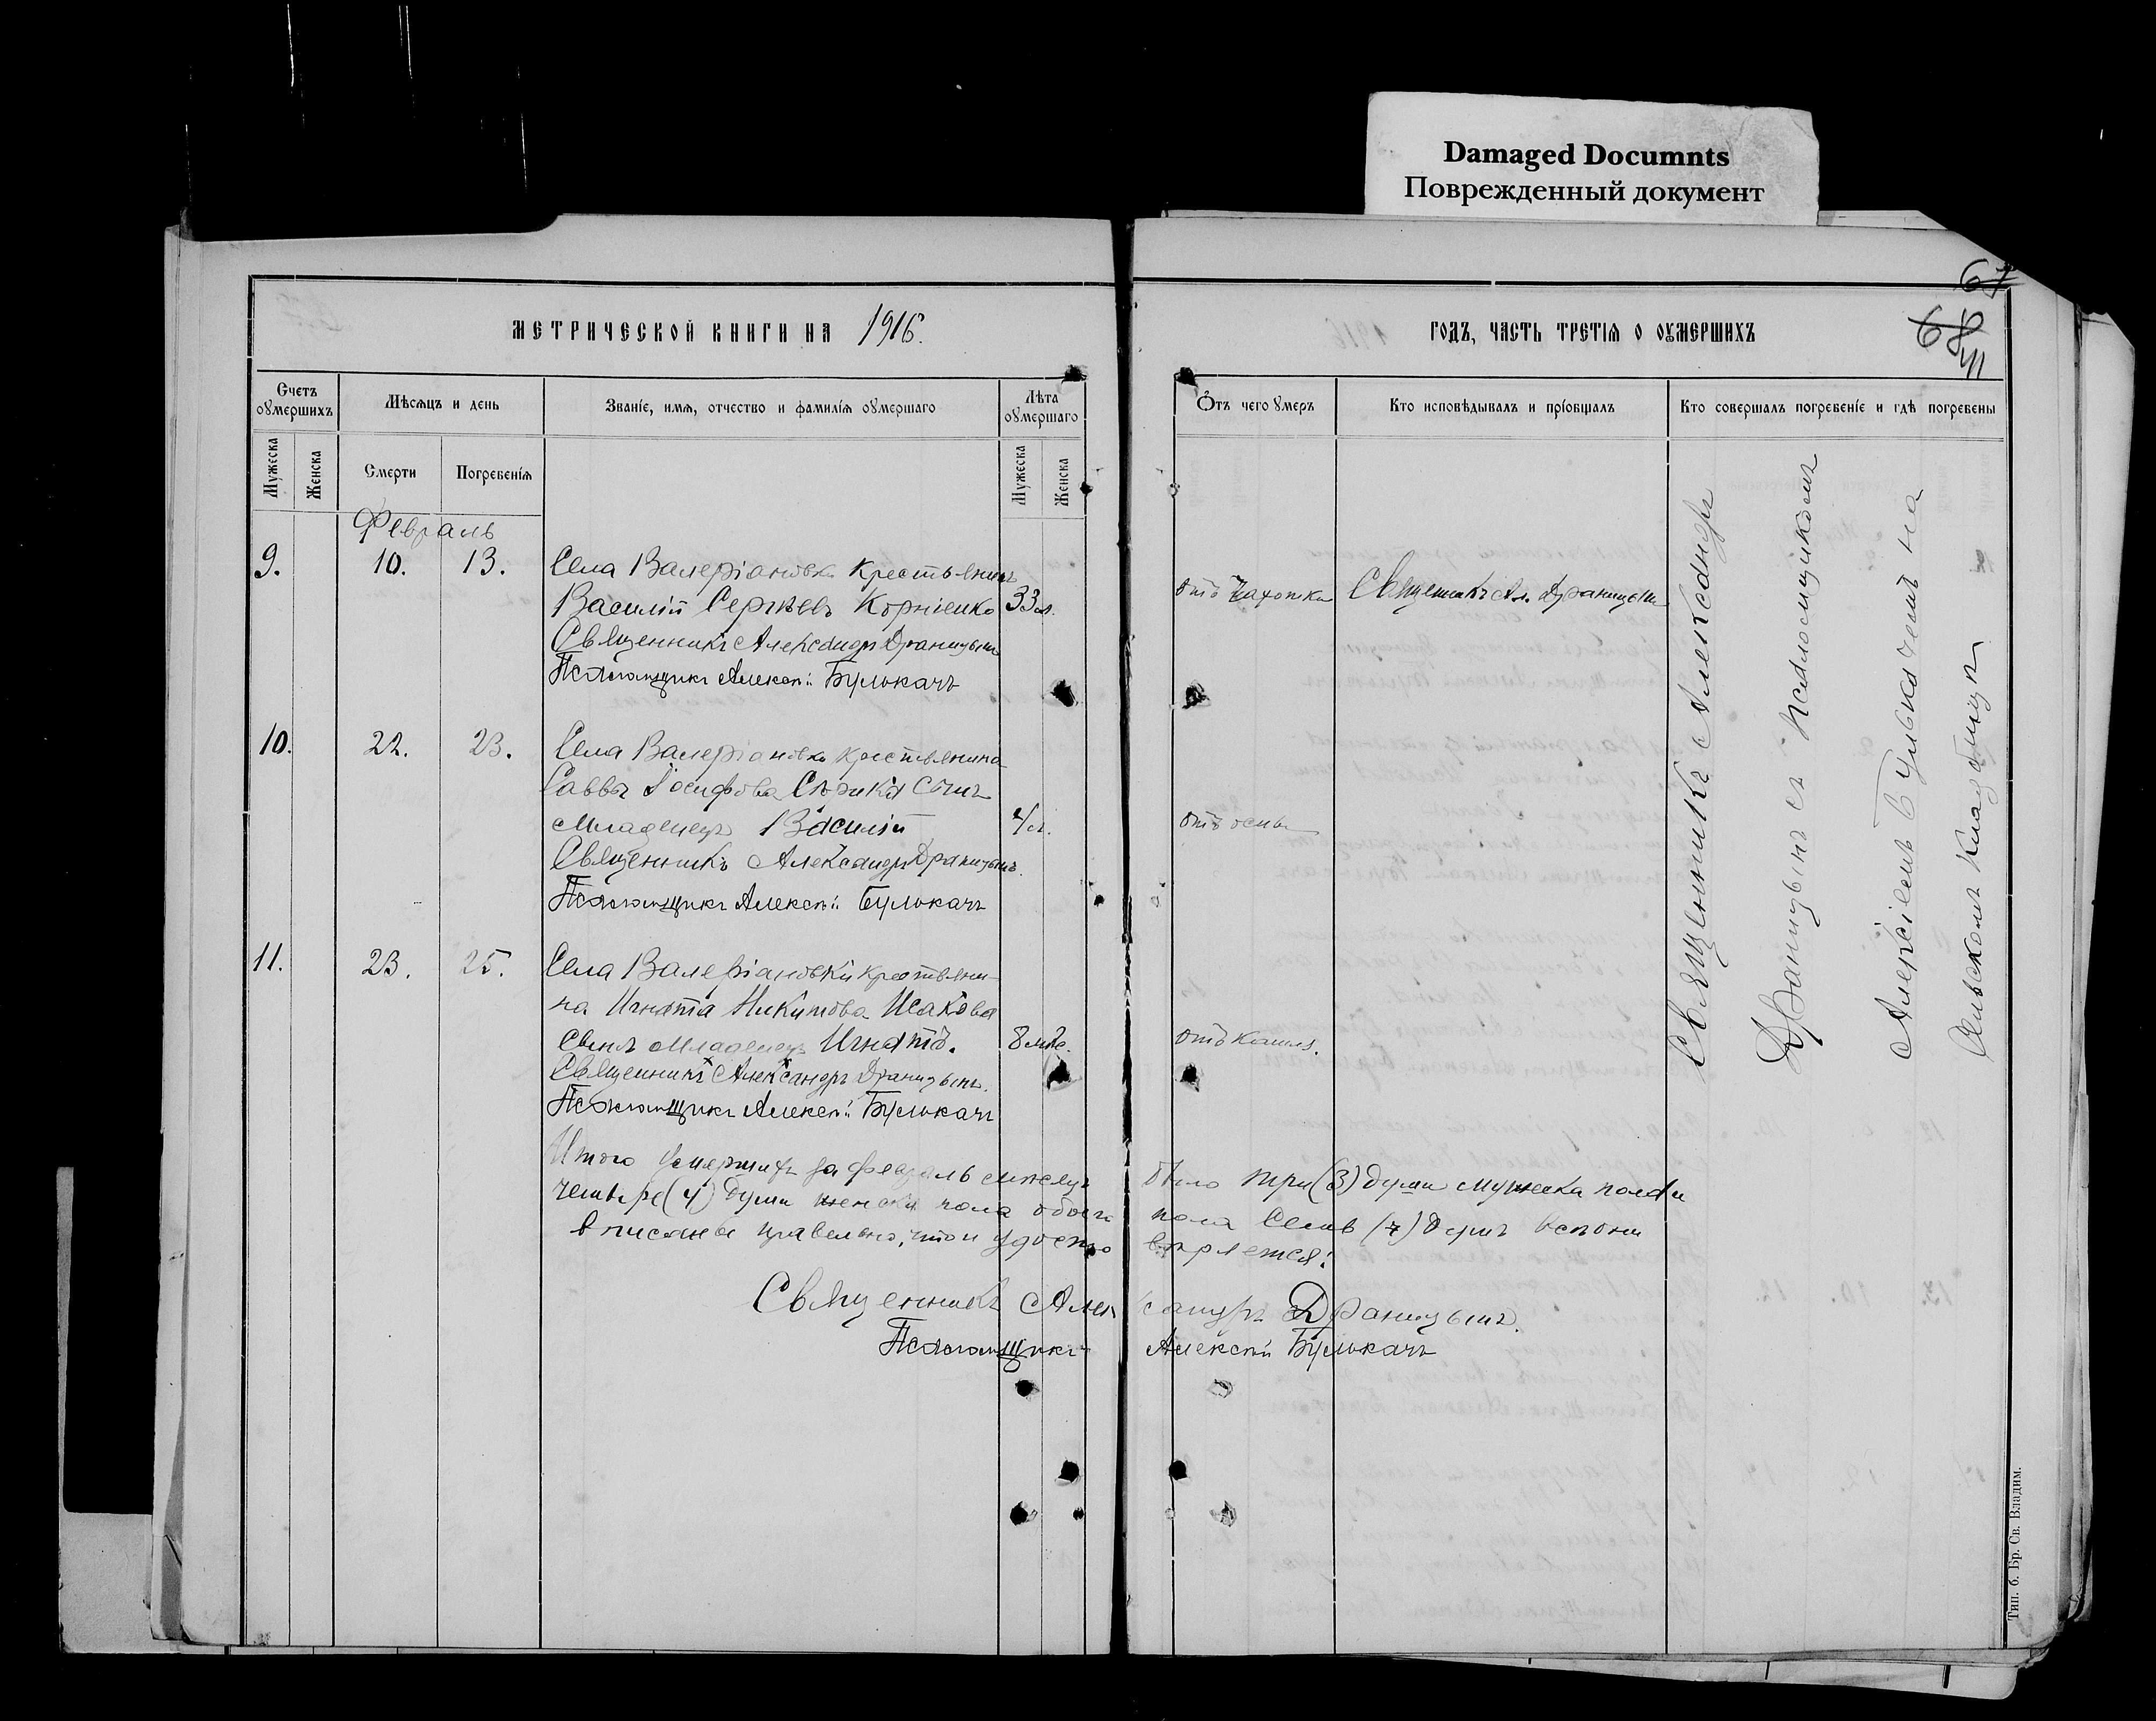 Damaged Documnts
Поврежденный документ
67
68
41
МЕТРИЧЕСКОЙ КНИГИ НА 1916.
ГОДЪ, ЧАСТЬ ТРЕТІЯ О ОУМЕРШИХЪ
Счетъ оумершихъ
Мѣсяцъ и день
Званіе, имя, отчество и фамилія оумершаго
Лѣта оумершаго
Отъ чего умеръ
Кто исповѣдывалъ и пріобщалъ
Кто совершалъ погребеніе и гдѣ погребены
Мужеска
Женска
Смерти
Погребенія
Мужеска
Женска
Февраль
9. 10. 13. Села Валеріановки крестьянинъ
Василій Сергѣевъ Корніенко 33 л. отъ чахотки Священникъ Ал. Драницынъ
Священникъ Александръ Драницынъ
Псаломщикъ Алексѣй Булюкачъ
10. 22. 23. Села Валеріановки крестьянина
Саввы Іосифова сынъ
Младенецъ Василій 4 л. отъ оспы
Священникъ Александръ Драницынъ.
Псаломщикъ Алексѣй Булюкачъ
11. 23. 25. Села Валеріановки крестьяни-
на Игната Никитова Исакова
сынъ младенецъ Игнатъ. 8 мѣс. отъ кашля.
Священникъ Александръ Драницынъ.
Псаломщикъ Алексѣй Булюкачъ
Итого умершихъ за февраль мѣсяцъ было три (3) души мужеска пола и
четыре (4) души женска пола обоего пола семь (7) душъ
вписаны правельно, что и удостовѣряется:
Священникъ Александръ Драницынъ.
Псаломщикъ Алексѣй Булюкачъ
Священникъ Александръ
Драницынъ съ псаломщикомъ
Алексіемъ Булюкачемъ на
сельскомъ кладбищѣ
Тип. б. Бр. Св. Владим.